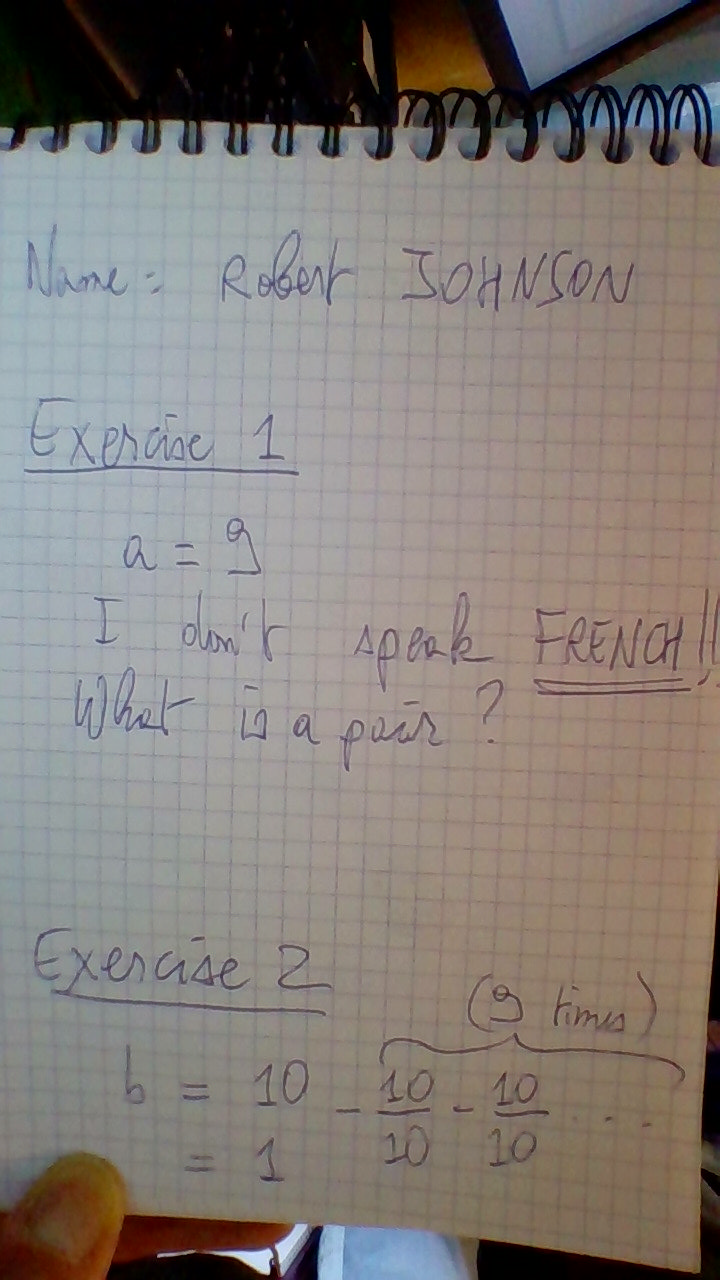 Name: Robert JOHNSON
Exercise 1
a = 9
I don't speak FRENCH!!
What is a pair ?
Exercise 2
(9 times)
b = 10 - 10/10 - 10/10 ...
= 1